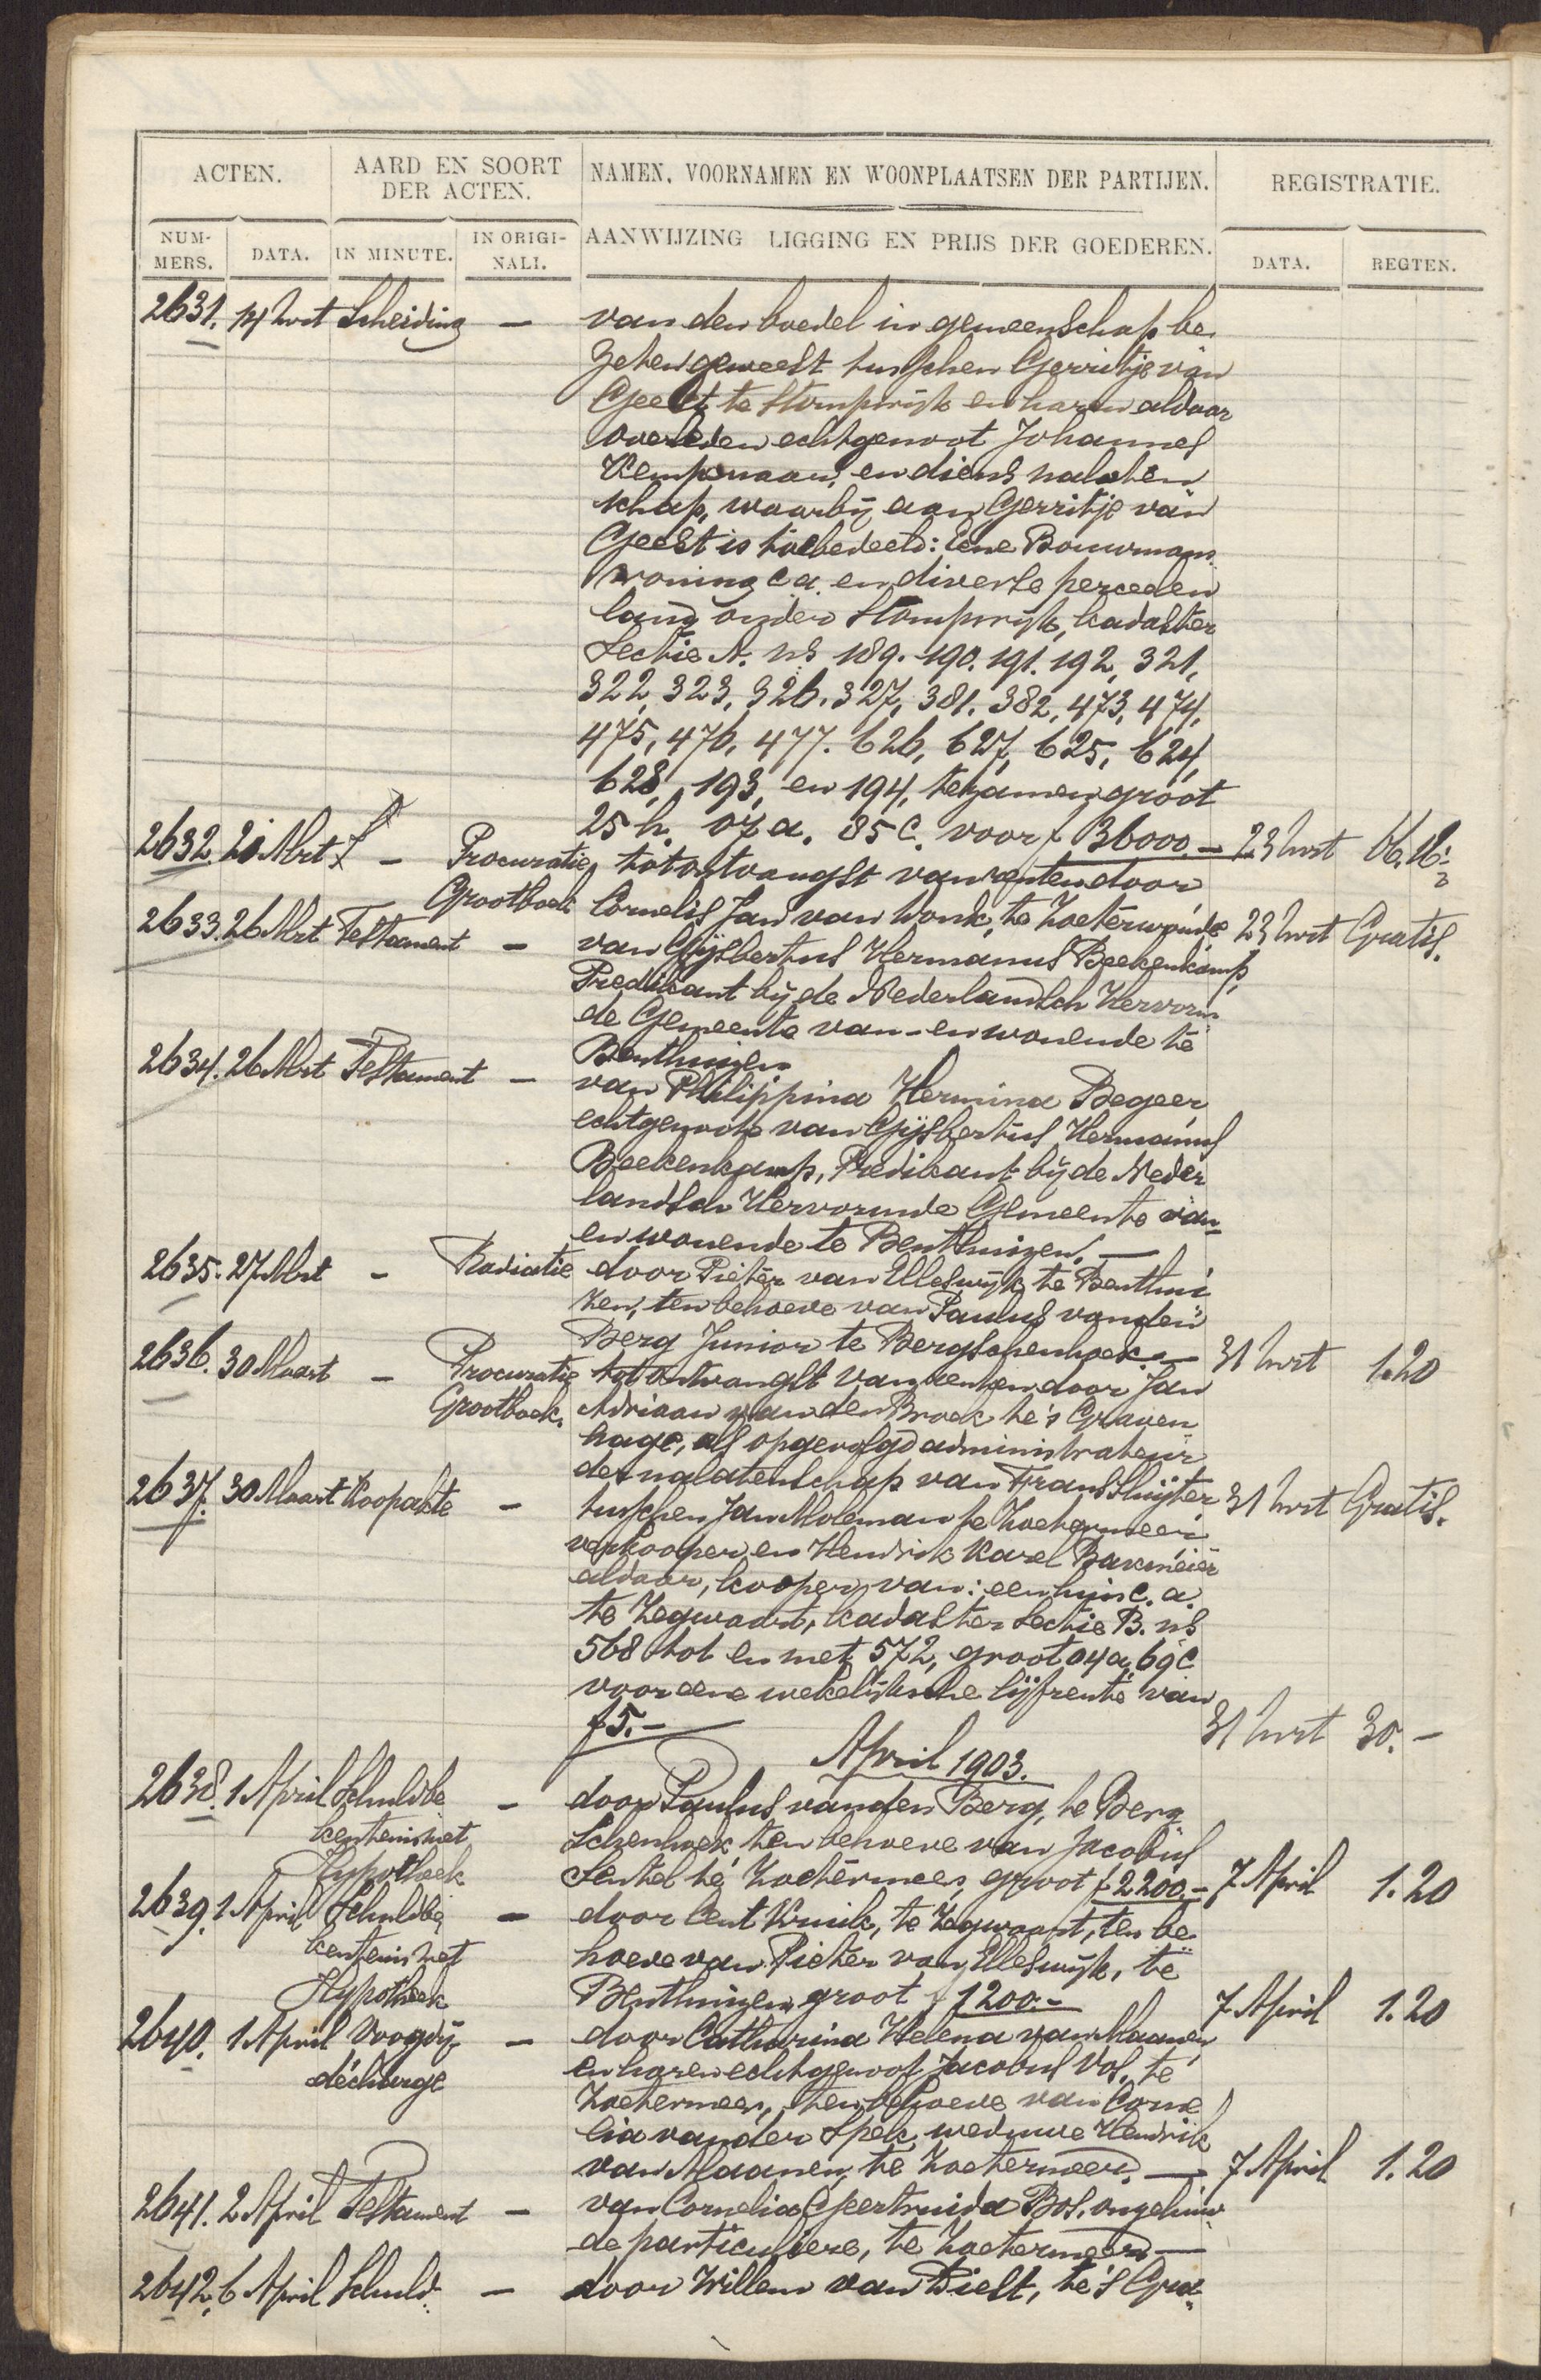 ACTEN. AARD EN SOORT DER ACTEN. NAMEN, VOORNAMEN EN WOONPLAATSEN DER PARTIJEN. REGISTRATIE.
NUM-MERS. DATA. IN MINUTE. IN ORIGI-NALI. AANWIJZING LIGGING EN PRIJS DER GOEDEREN. DATA. REGTEN.
2631. 14 Mrt Scheiding — van den boedel in gemeenschap be
zeten geweest tusschen Gerritje van
Geest te Stompwijk en haren aldaar
overleden echtgenoot Johannes
Kempenaar, en diens nalaten
schap, waarbij aan Gerritje van
Geest is toebedeeld: Eene Bouwmans
woning c.a. en diverse perceelen
land onder Stompwijk, kadaster
Sectie A. ns 189. 190. 191. 192, 321,
322, 323, 326. 327, 381. 382, 473, 474,
475, 476, 477. 626, 627, 625, 624,
628, 193, en 194, tezamen groot
25 h. 07 a. 85 c. voor f 36000.— 23 Mrt
2632. 20 Mrt — Procuratie tot ontvangst van renten door
Grootboek Cornelis Jan van Wonk, te Zoeterwoude 23 Mrt Gratis.
2633. 26 Mrt Testament — van Gijsbertus Hermanus Beekenkamp,
Predikant bij de Nederlandsch Hervorm
de Gemeente van- en wonende te
Benthuizen
2634. 26 Mrt Testament — van Philippina Hermina Begeer,
echtgenoote van Gijsbertus Hermanus
Beekenkamp, Predikant bij de Neder
landsch Hervormde Gemeente van-
en wonende te Benthuizen. —
2635. 27 Mrt — Radiatie door Pieter van Elleswijk te Benthui
zen, ten behoeve van Paulus van den
Berg Junior te Bergschenhoek. — 31 Mrt 1.20
2636. 30 Maart — Procuratie tot ontvangst van renten door Jan
Grootboek. Adriaan van den Broek te 's Graven
hage, als opgevolgd administrateur
der nalatenschap van Frans Sluijter 31 Mrt Gratis.
2637. 30 Maart Koopakte — tusschen Jan Moleman te Zoetermeer
verkooper, en Hendrik Karel Bakmeier
aldaar, kooper, van: een huis c.a.
te Zegwaart, kadaster Sectie B. ns
568 tot en met 572, groot 04 a, 69 c
voor eene wekelijksche lijfrente van
f 5.— 31 Mrt 30.—
April 1903.
2638. 1 April Schuldbe — door Paulus van den Berg, te Berg
kentenis met Schenhoek, ten behoeve van Jacobus
Hypotheek Sentel te Zoetermeer, groot f 2200.— 7 April 1.20
2639. 1 April Schuldbe — door Cent Kruik, te Zegwaart, ten be
kentenis met hoeve van Pieter van Elleswijk, te
Hypotheek Benthuizen, groot f 1200.— 7 April 1.20
2640. 1 April Voogdij — door Catharina Helena van Maanen
décharge en haren echtgenoot Jacobus Vos, te
Zoetermeer, ten behoeve van Corne
lia van der Spek, weduwe Hendrik
van Maanen, te Zoetermeer. — 7 April 1.20
2641. 2 April Testament — van Cornelia Geertruida Bos, ongehuw
de particuliere, te Zoetermeer —
2642. 6 April Schuld — door Willem van Dielt, te 's Gra